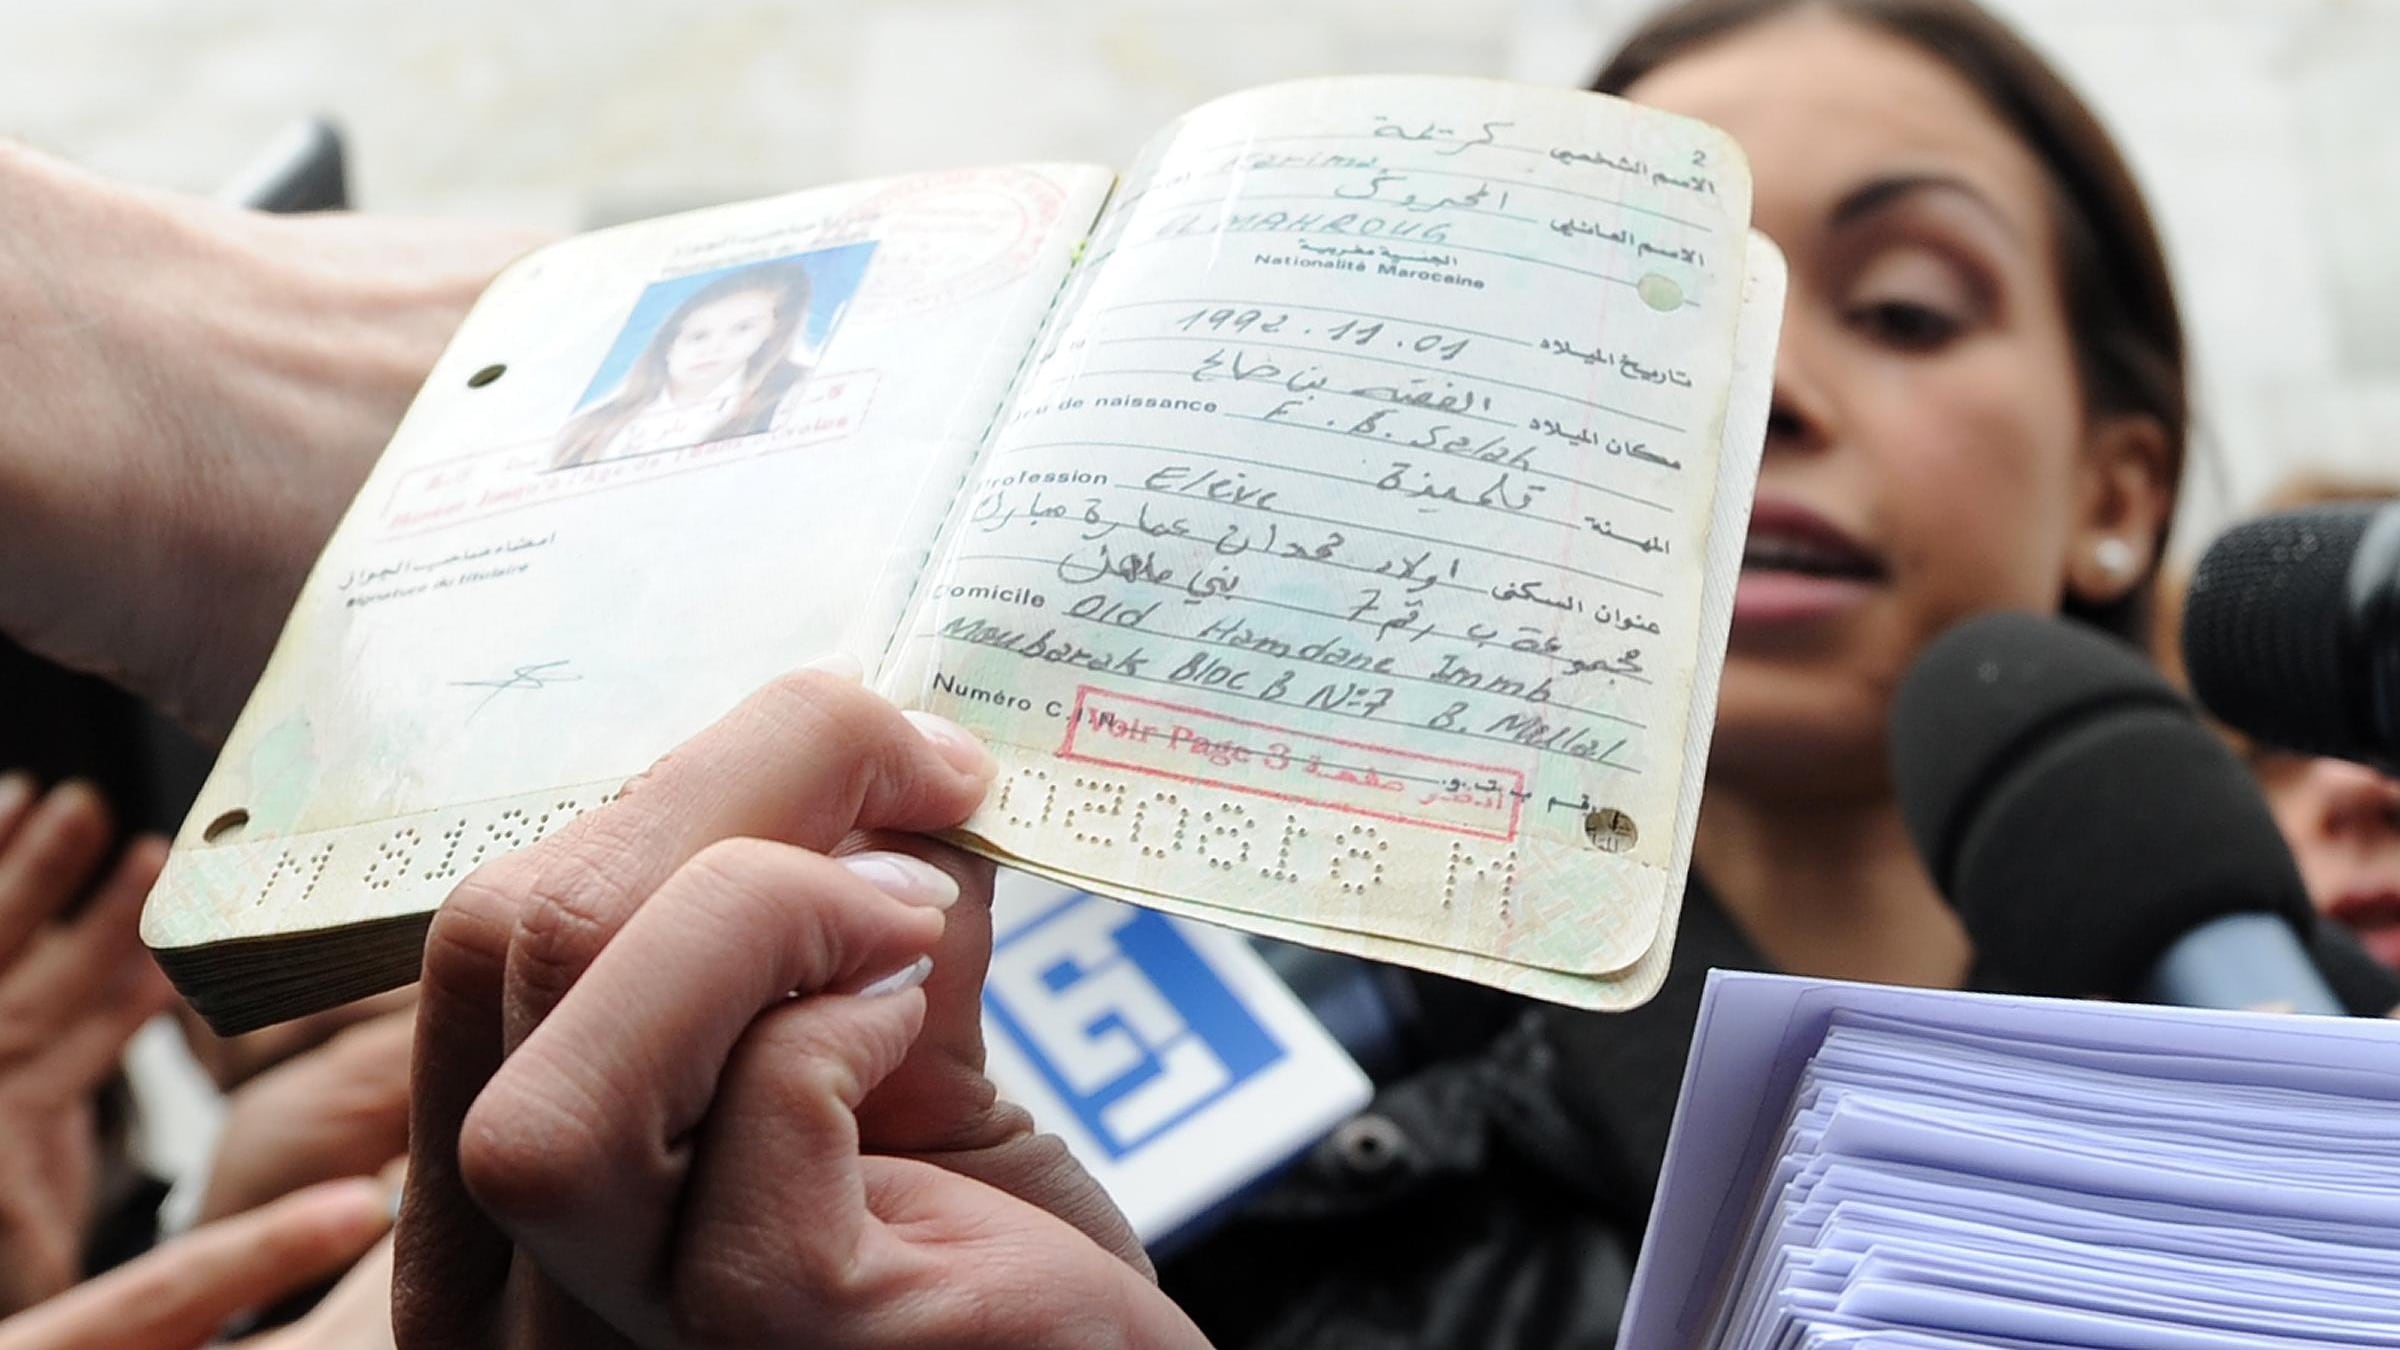 امضاء صاحب الجواز
Signature du titulaire
M 8180
2
الاسم الشخصي كريمة
Karima
الاسم العائلي المحروق
EL MAHROUG
الجنسية مغربية
Nationalité Marocaine
تاريخ الميلاد 1992.11.01
مكان الميلاد الفقيه بن صالح
Lieu de naissance F.B.Salah
تلميذة
Profession Elève المهنة
عنوان السكنى اولاد حمدان عمارة مبارك
مجموعة ب رقم 7 بني ملال
Domicile Old Hamdane Immb
Moubarak Bloc B N:7 B.Mellal
Numéro C.I.N رقم ب.ت.و.
Voir Page 3 أنظر صفحة
M 8180502